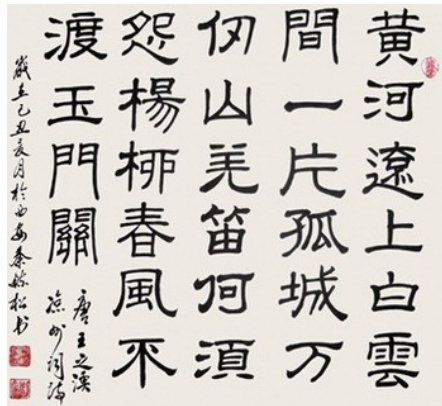 黄河遼上白雲
間一片孤城万
仞山羌笛何湏
怨楊柳春風不
渡玉門關
唐王之渙
凉州词诗
歲在己丑辰月於西安秦毓松书